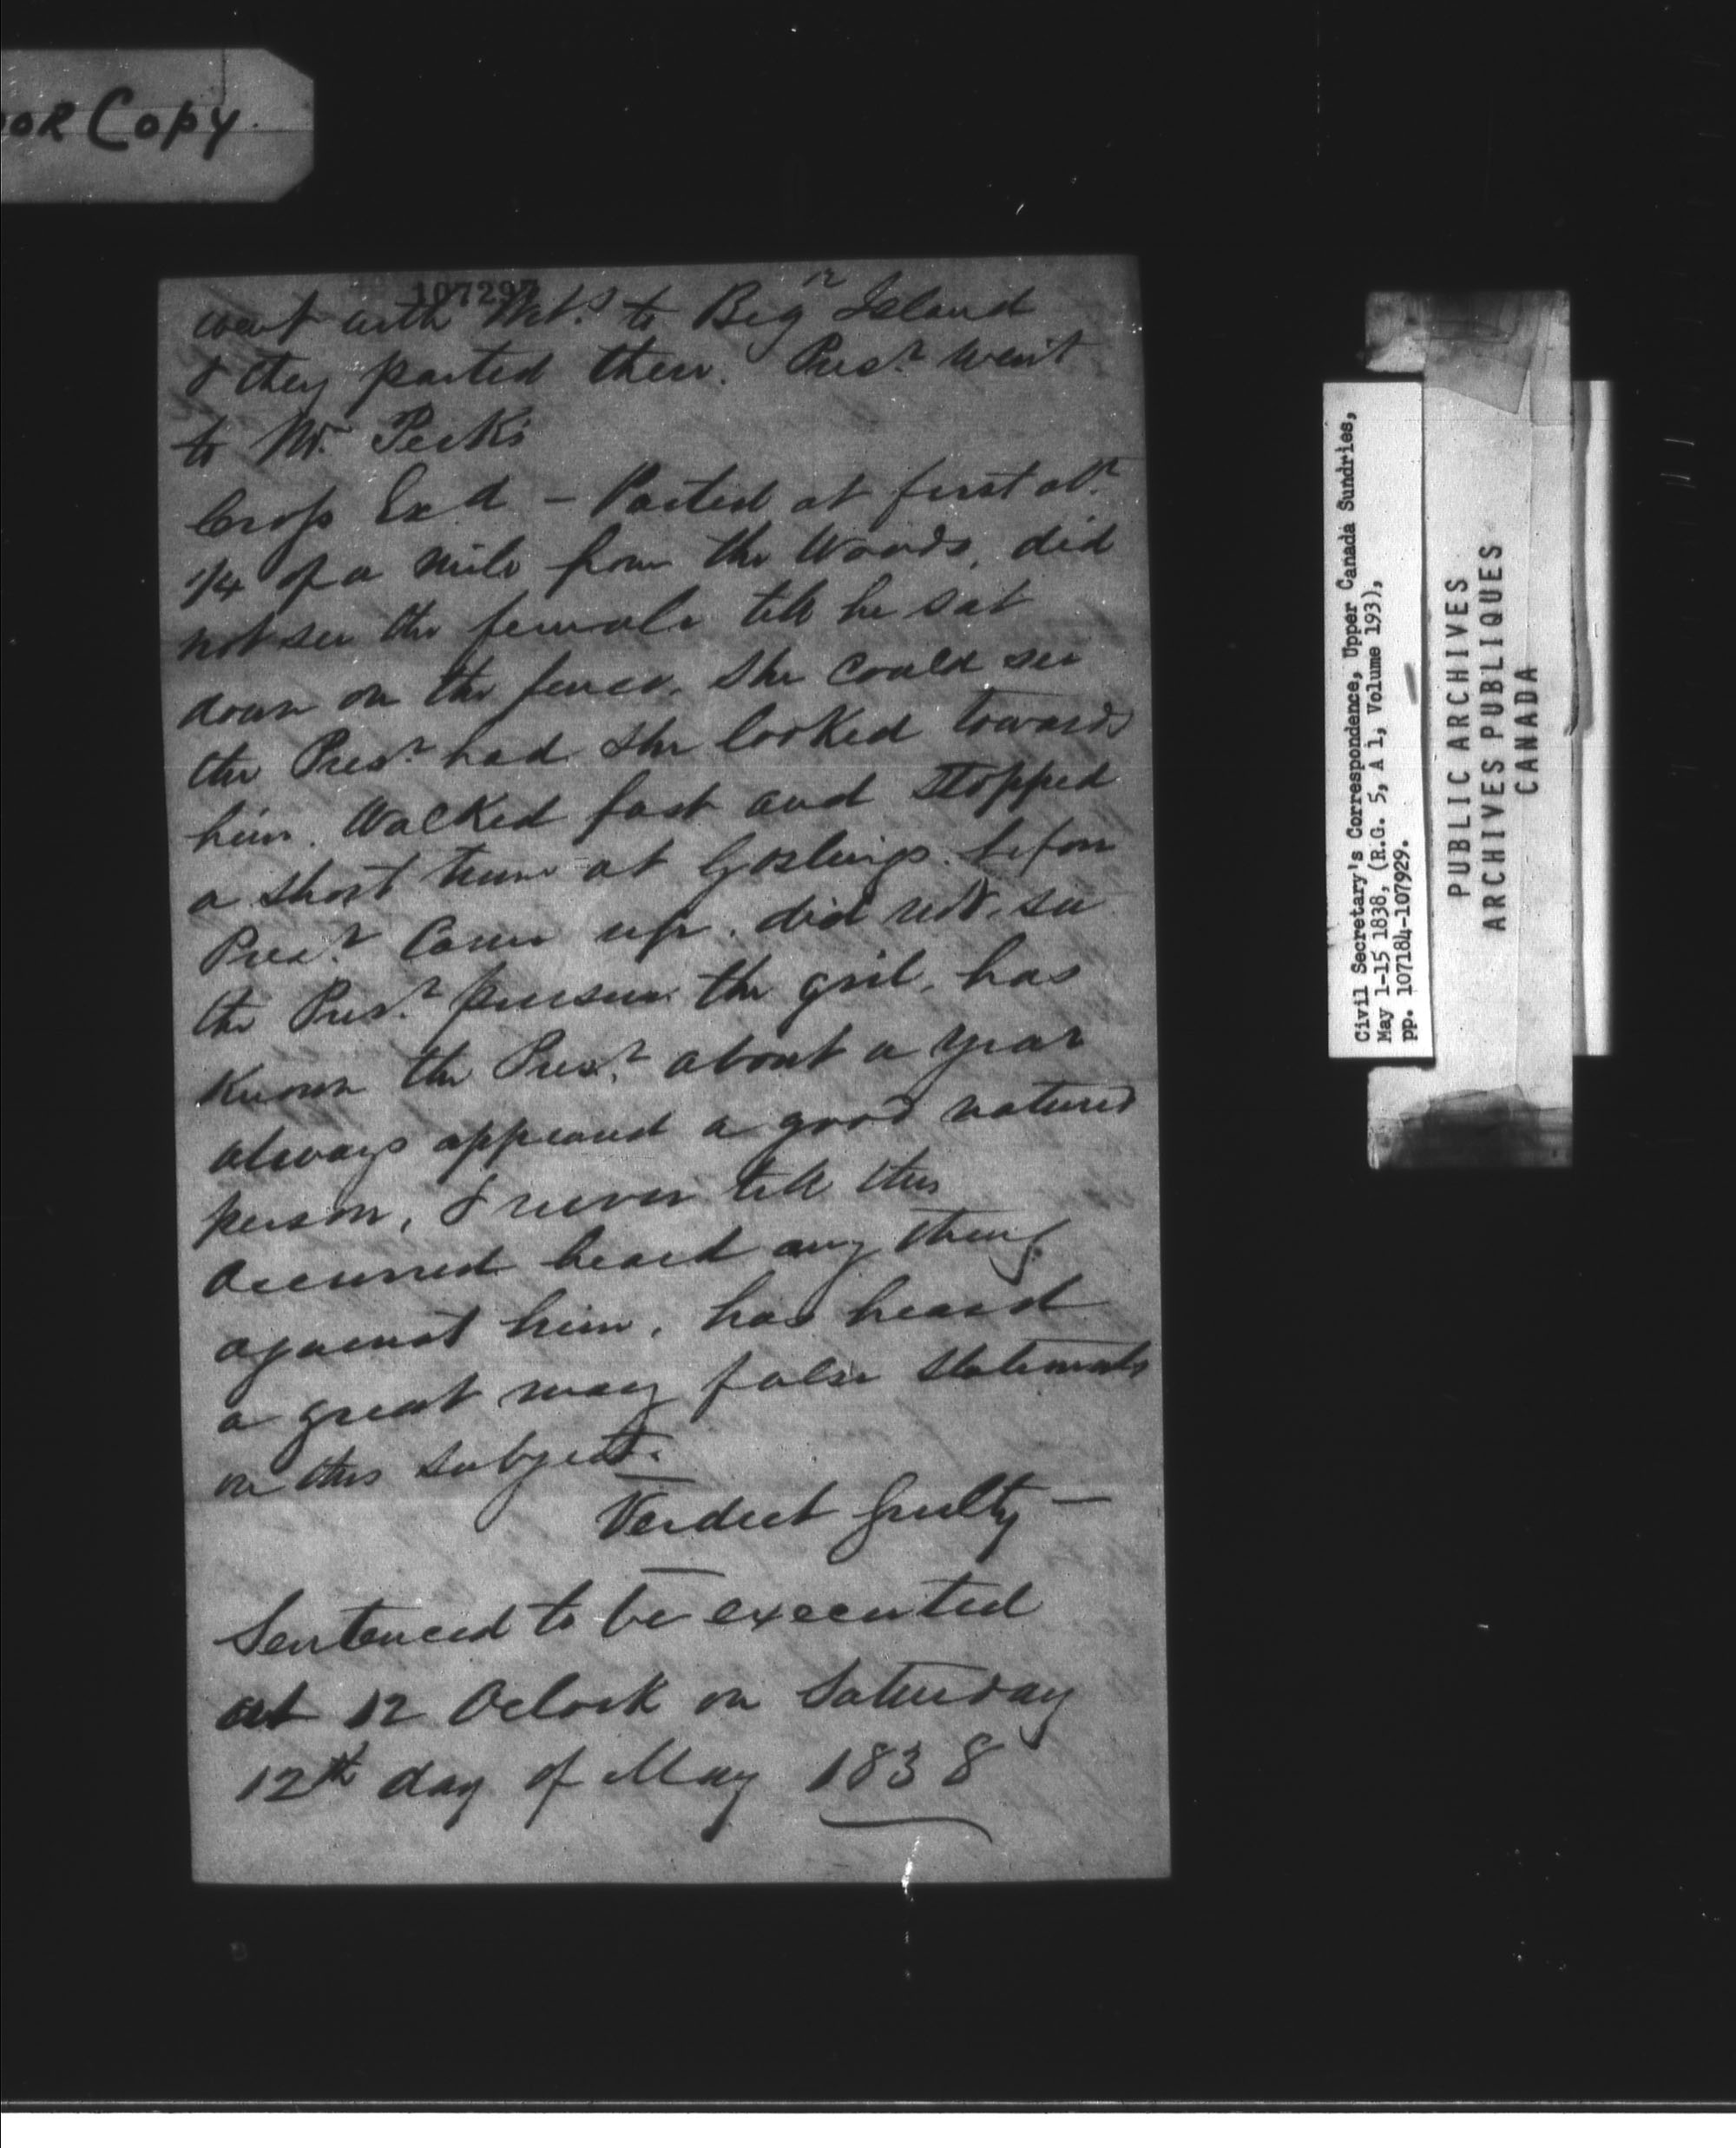 OOR Copy.
107297
went with Wits to Big Island
& they parted there. Prisr went
to Mr. Pecks
Cross Exd – Parted at first abt
1/4 of a mile from the Woods, did
not see the female till he sat
down on the fence. She could see
the Prisr had she looked towards
him. Walked fast and stopped
a short time at Goslings before
Prisr Came up. did not see
the Prisr pursue the girl, has
known the Prisr about a year
always appeared a good natured
person, & never till this
occurred heard any thing
against him, has heard
a great many false statements
on this subject.
Verdict Guilty —
Sentenced to be executed
at 12 Oclock on Saturday
12th day of May 1838
Civil Secretary's Correspondence, Upper Canada Sundries,
May 1-15 1838, (R.G. 5, A 1, Volume 193),
pp. 107184-107929.
PUBLIC ARCHIVES
ARCHIVES PUBLIQUES
CANADA